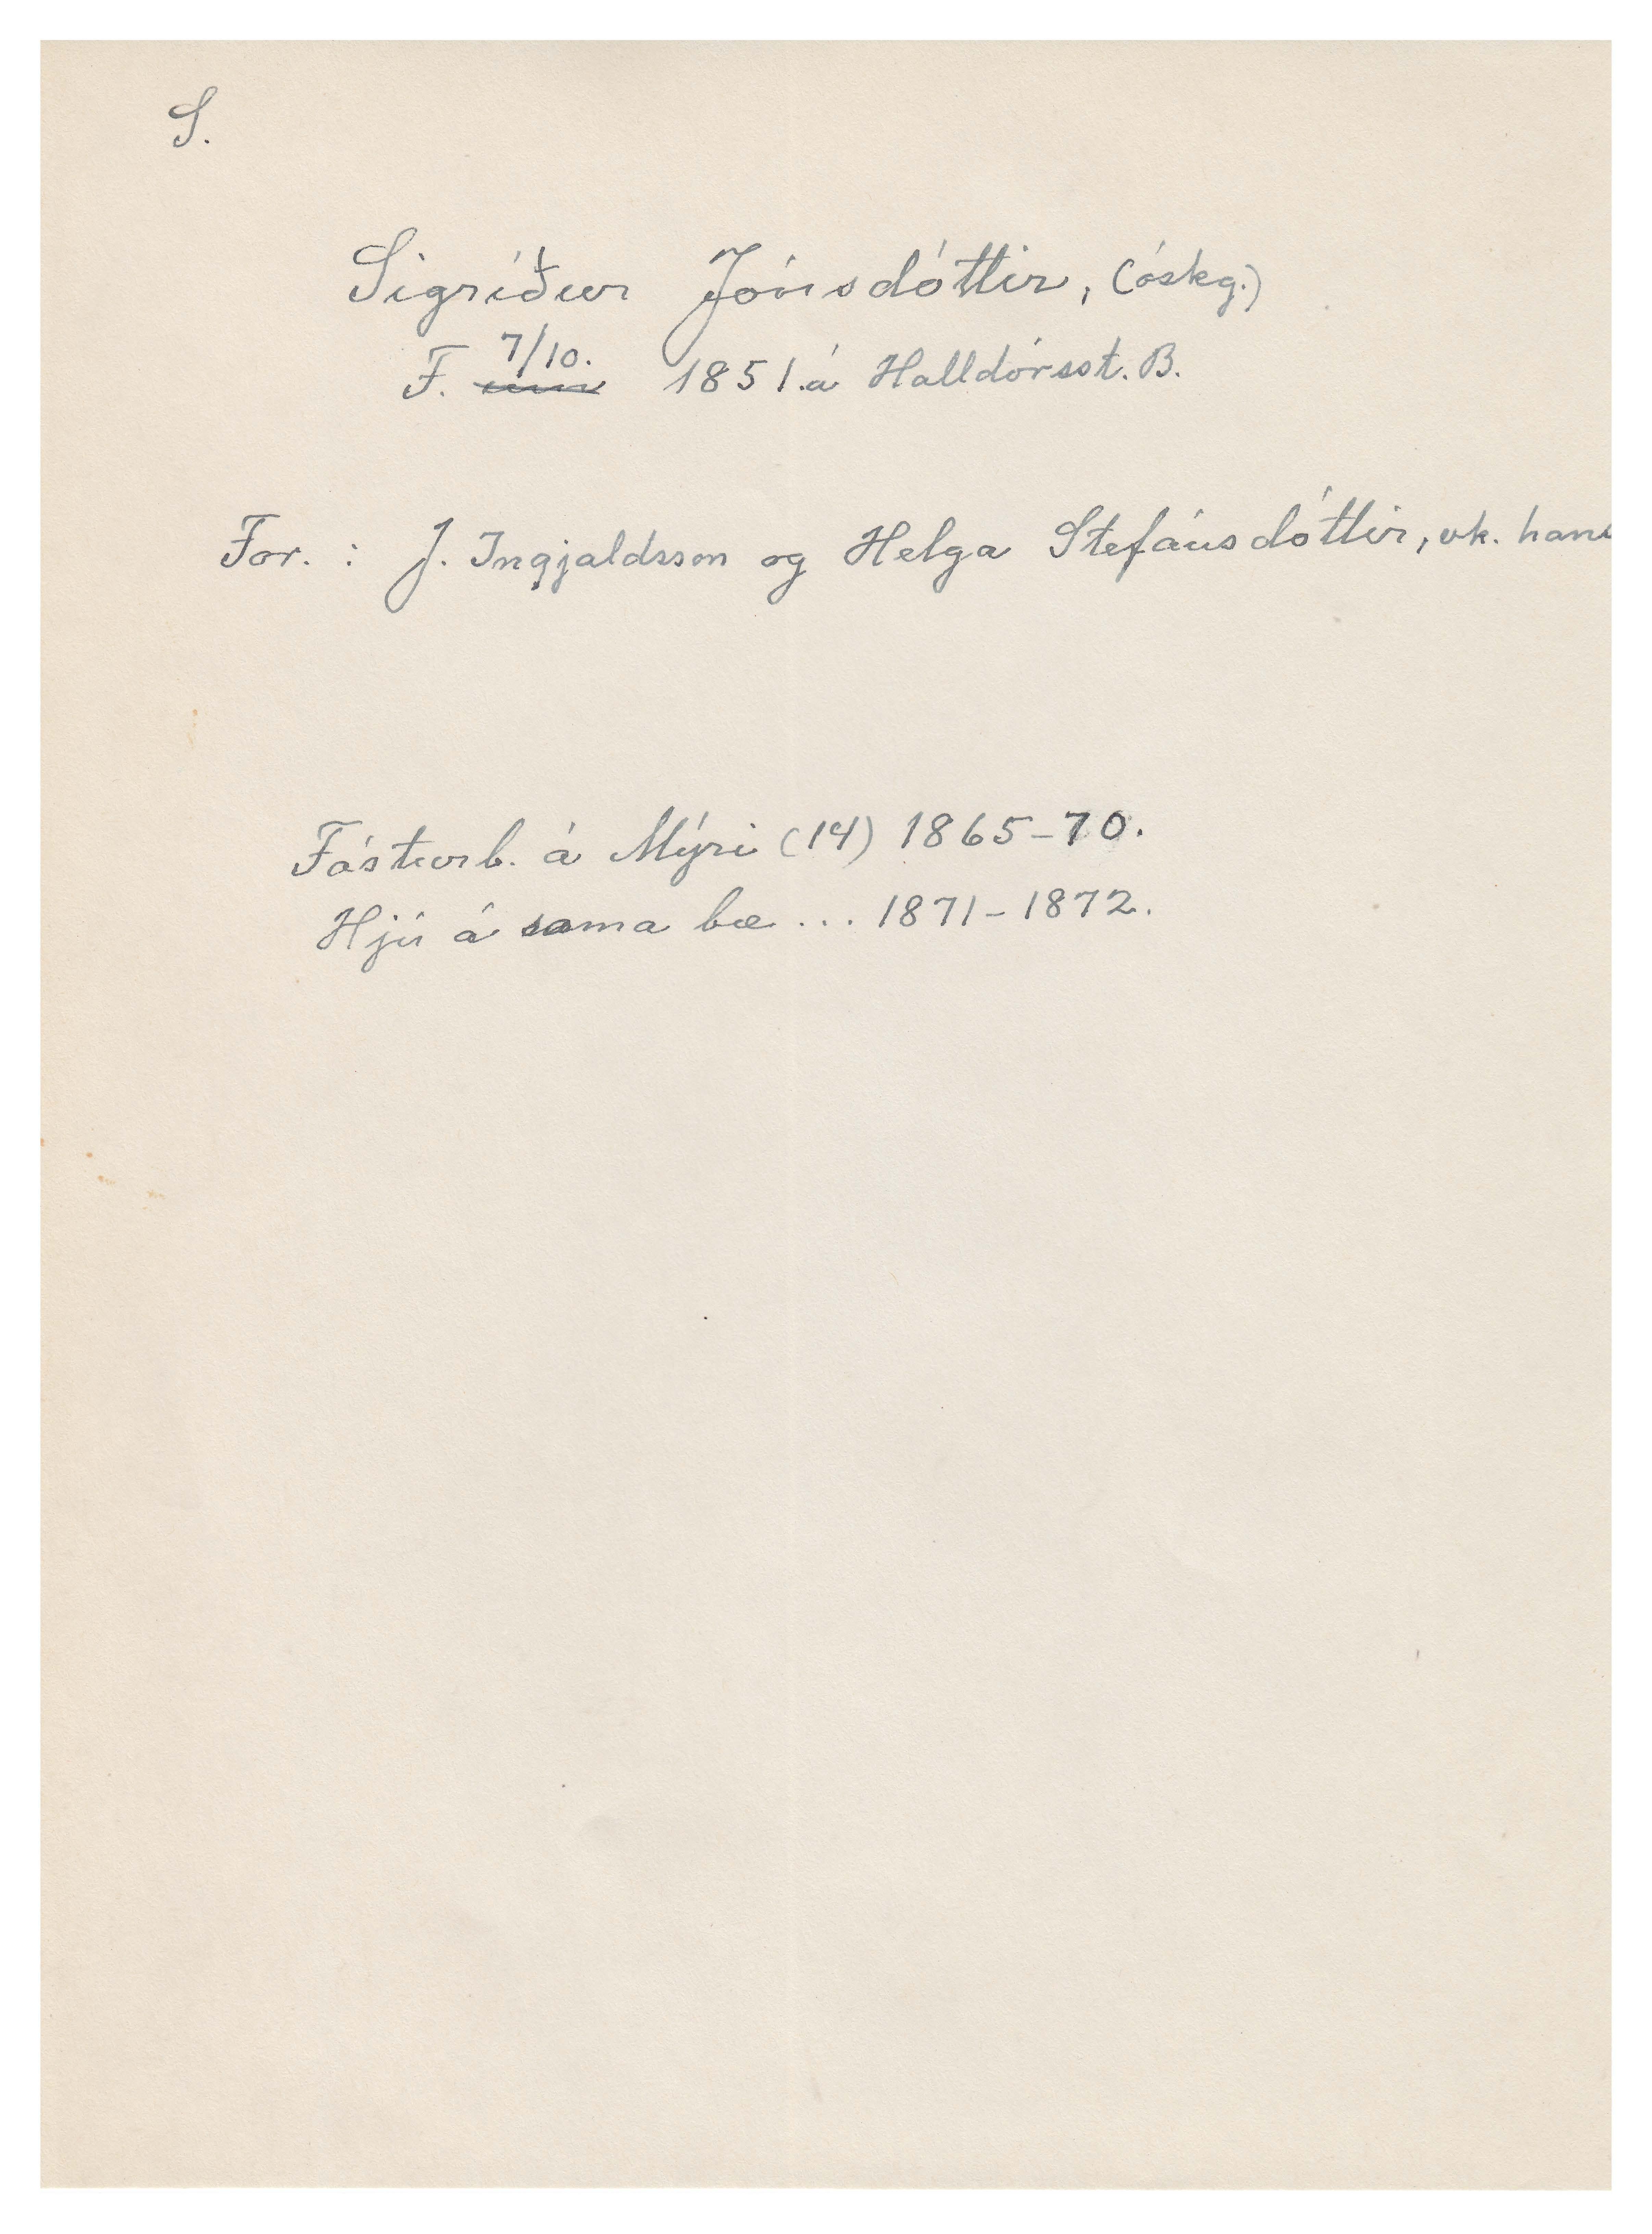 S.
Sigríður Jónsdóttir, (óskg.)
7/10.
F. 1851.á Halldórsst. B.
For. : J. Ingjaldsson og Helga Stefánsdóttir, vk. hans
Fósturb. á Mýri (14) 1865-70.
Hjú á sama bæ ... 1871-1872.